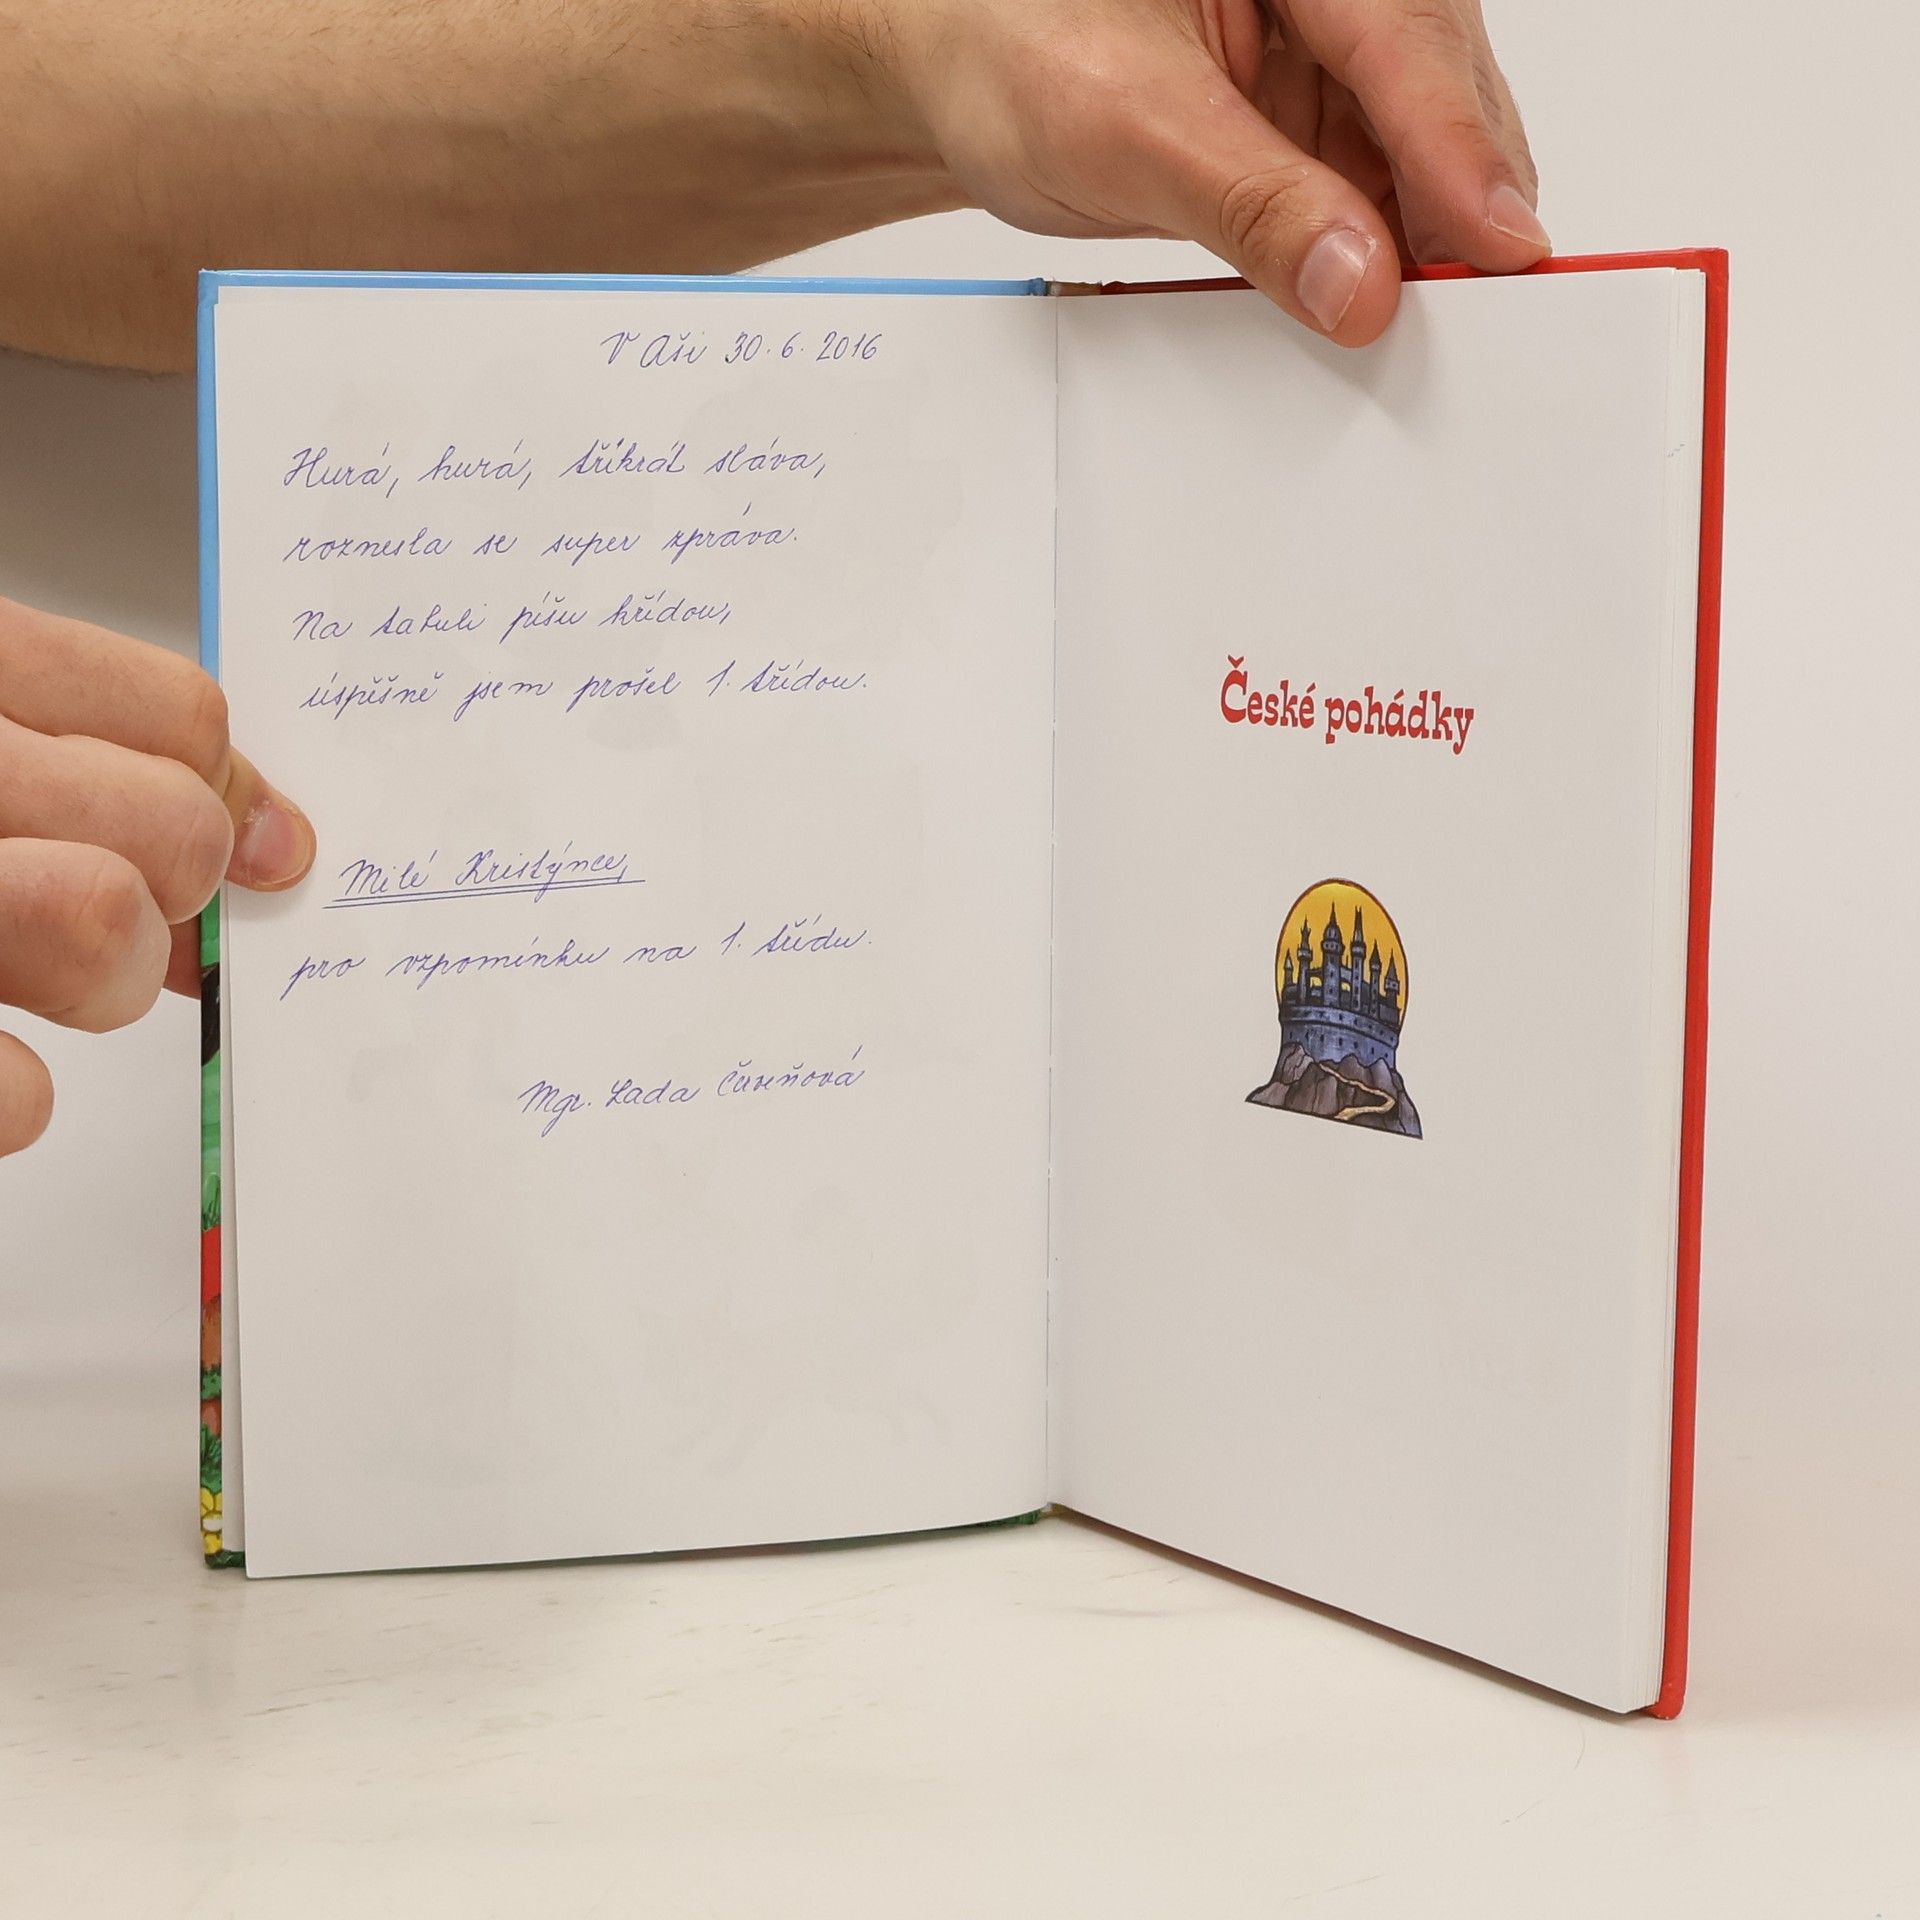 V Aši 30. 6. 2016
Hurá, hurá, třikrát sláva,
roznesla se super zpráva.
Na tabuli píšu křídou,
úspěšně jsem prošel 1. třídou.
Milé Kristýnce,
pro vzpomínku na 1. třídu.
Mgr. Lada Červeňová
České pohádky